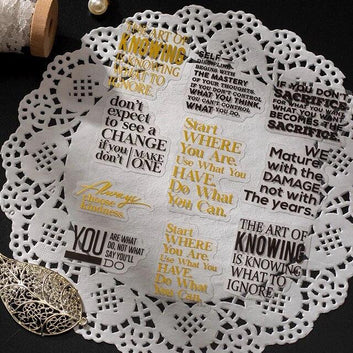 THE ART OF
KNOWING
IS KNOWING
WHAT TO
IGNORE.
SELF-
DISCIPLINE
BEGINS WITH
THE MASTERY
OF YOUR THOUGHTS.
IF YOU DON'T CONTROL
WHAT YOU THINK,
YOU CAN'T CONTROL
WHAT YOU DO.
IF YOU DON'T
SACRIFICE
FOR WHAT
YOU WANT,
WHAT YOU WANT
BECOMES THE
SACRIFICE.
don't
expect
to see a
CHANGE
if you MAKE
don't ONE
Start
WHERE
You Are.
Use What You
HAVE.
Do What
You Can.
WE
Mature
with the
DAMAGE,
not with
The years.
Always
choose
kindness.
YOU ARE WHAT
DO, NOT WHAT
SAY YOU'LL
DO
Start
WHERE
You Are.
Use What You
HAVE.
Do What
You Can.
THE ART OF
KNOWING
IS KNOWING
WHAT TO
IGNORE.